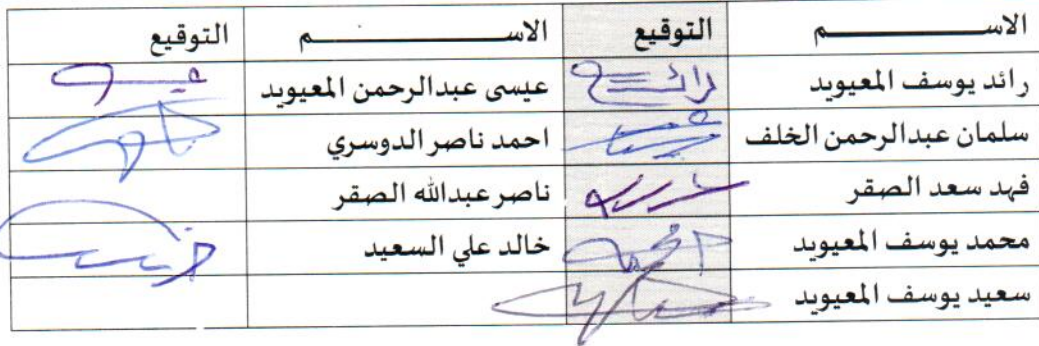 الاســــــم التوقيع الاســــــم التوقيع
رائد يوسف المعيويد عيسى عبدالرحمن المعيويد
سلمان عبدالرحمن الخلف احمد ناصر الدوسري
فهد سعد الصقر ناصر عبدالله الصقر
محمد يوسف المعيويد خالد علي السعيد
سعيد يوسف المعيويد